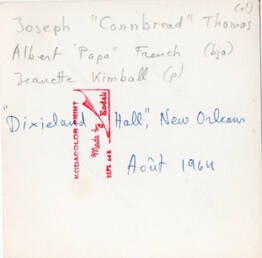 (cl)
Joseph "Cornbread" Thomas
Albert "Papa" French (bjo)
Jeanette Kimball (p)
"Dixieland Hall", New Orleans
Août 1964
KODACOLOR PRINT
Made by Kodak